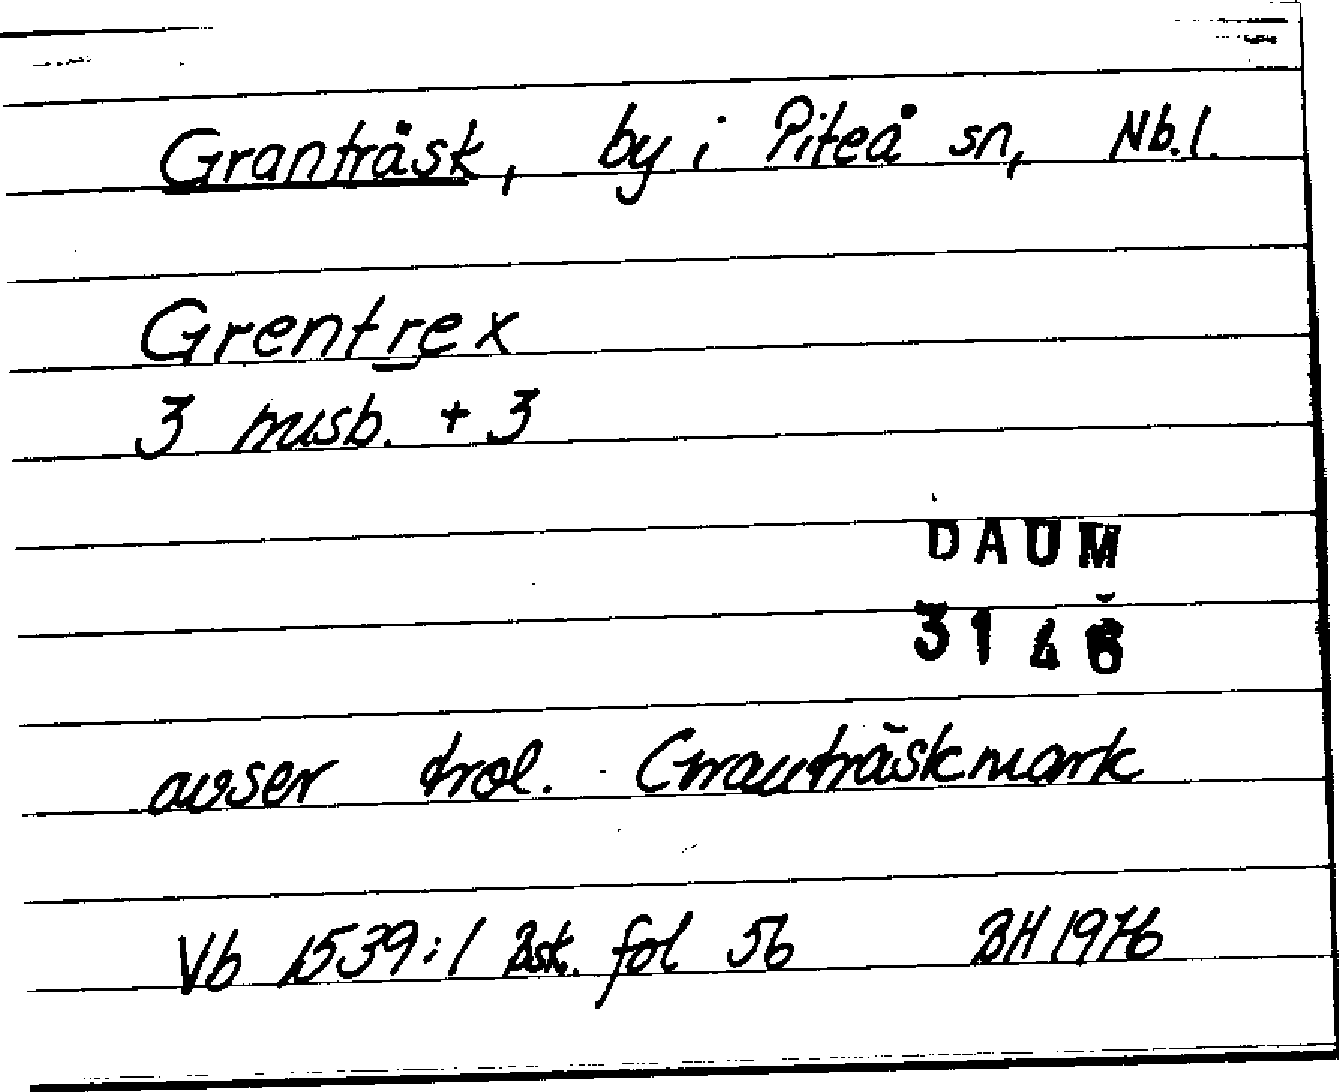 Granträsk, by i Piteå sn, Nb.l.
Grentrex
3 musb. + 3
DAUM
3146
avser trol. Granträskmark
Vb 1539:1 Bsk. fol 56 BH 1976